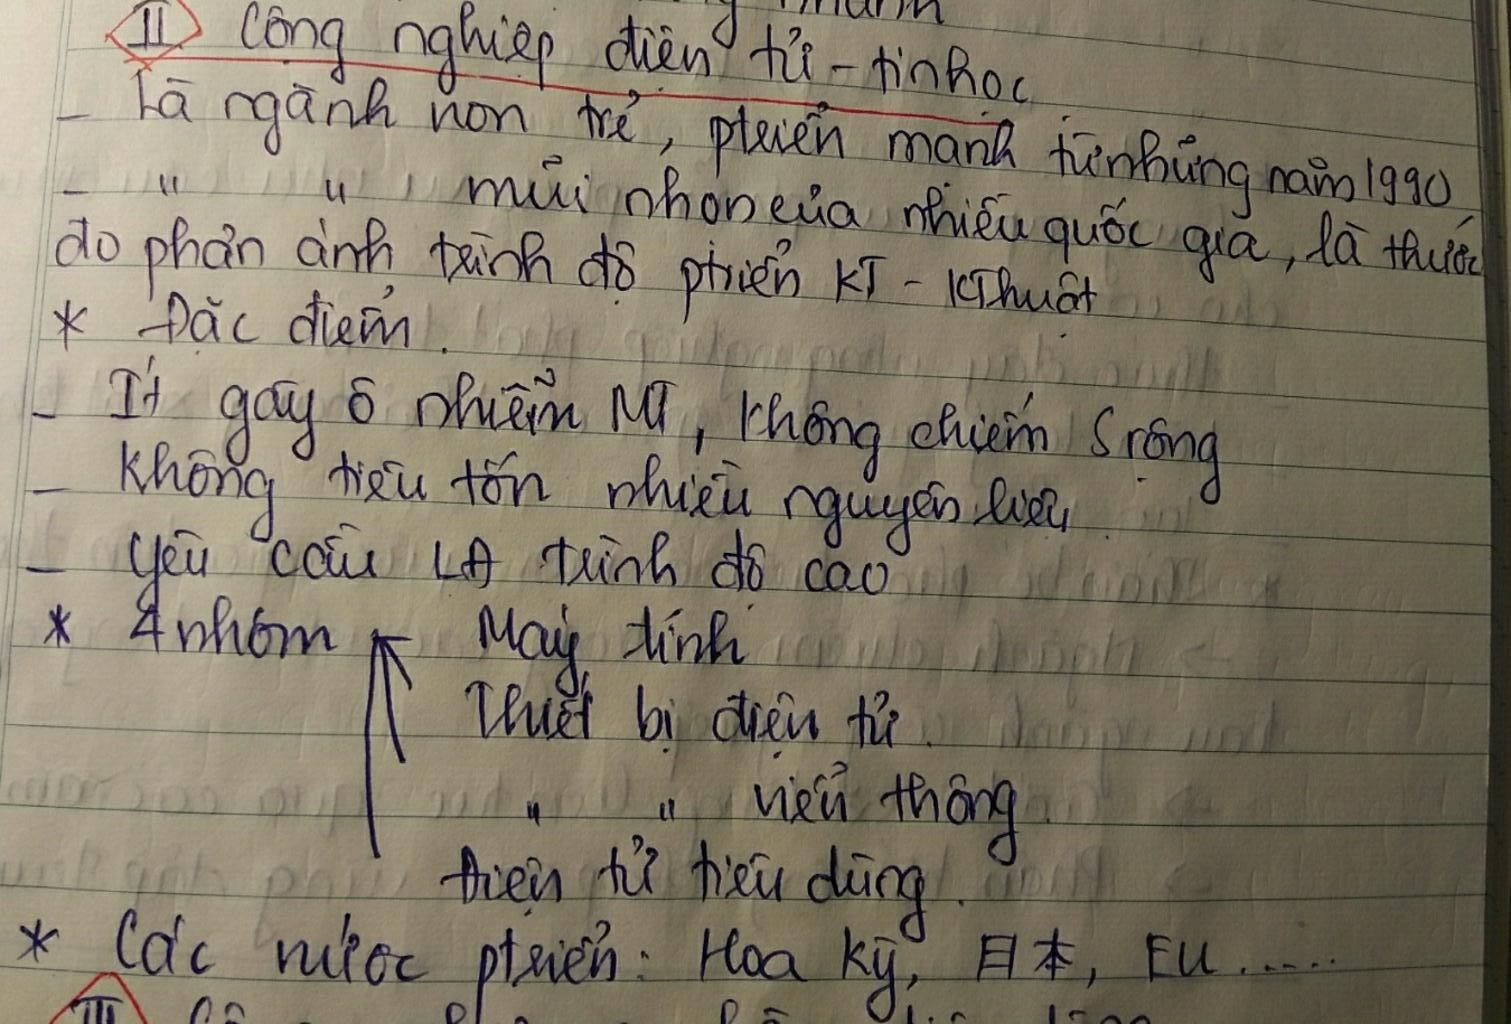 II Công nghiệp điện tử - tin học
- Là ngành non trẻ, ptriển mạnh từ những năm 1990
- " " mũi nhọn của nhiều quốc gia, là thước
đo phản ánh trình độ ptriển KT - KThuật
* Đặc điểm.
- Ít gây ô nhiễm MT, không chiếm S rộng
- Không tiêu tốn nhiều nguyên liệu
- Yêu cầu LĐ trình độ cao
* 4 nhóm Máy tính
Thiết bị điện tử.
" " viễn thông.
Điện tử tiêu dùng.
* Các nước ptriển: Hoa Kỳ, 日本, EU.....
III